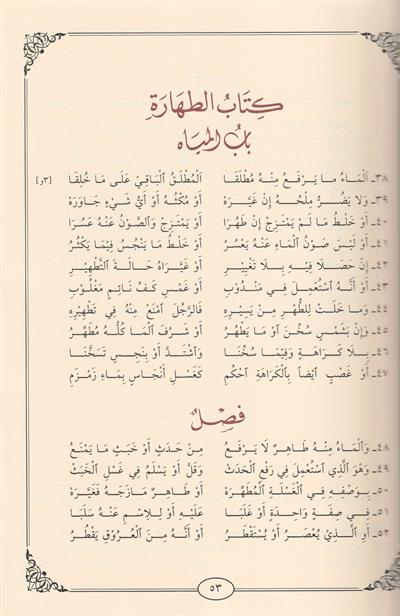 كِتَابُ الطَّهَارَةِ
بَابُ المِيَاه
٣٨- اَلْمَاءُ مَا يَرْفَعُ مِنْهُ مُطْلَقَا اَلْمُطْلَقُ الْبَاقِيْ عَلَى مَا خُلِقَا [٣و]
٣٩- وَلَا يَضُرُّ مِلْحُهُ إِنْ غَيَّرَهْ أَوْ مُكْثُهُ أَوْ أَيُّ شَيْءٍ جَاوَرَهْ
٤٠- أَوْ خَلْطُ مَا لَمْ يَمْتَزِجْ إِنْ طَهُرَا أَوْ يَمْتَزِجْ وَالصَّوْنُ عَنْهُ عَسُرَا
٤١- أَوْ لَيْسَ صَوْنُ الْمَاءِ عَنْهُ يَعْسُرُ أَوْ خَلْطُ مَا يَنْجُسُ فِيْمَا يَكْثُرُ
٤٢- إِنْ حَصَلَا فِيْهِ بِلَا تَغْيِيْرِ أَوْ غَيَّرَاهُ حَالَةَ التَّطْهِيْرِ
٤٣- أَوْ أَنَّهُ اسْتُعْمِلَ فِيْ مَنْدُوْبِ أَوْ غَمْسِ كَفِّ نَائِمٍ مَغْلُوْبِ
٤٤- وَمَا خَلَتْ لِلطُّهْرِ مِنْ يَسِيْرِهِ فَالرَّجُلَ امْنَعْ مِنْهُ فِيْ تَطْهِيْرِهِ
٤٥- وَإِنْ بِشَمْسٍ سُخِّنَ أَوْ مَا يَطْهُرُ أَوْ شَرُفَ الْمَا كُلُّهُ مُطَهِّرُ
٤٦- بِلَا كَرَاهَةٍ وَفِيْمَا سُخِّنَا وَاشْتَدَّ أَوْ بِنَجِسٍ تَسَخَّنَا
٤٧- أَوْ غَصْبٍ ايْضاً بِالْكَرَاهَةِ احْكُمِ كَغَسْلِ أَنْجَاسٍ بِمَاءِ زَمْزَمِ
فَصْلٌ
٤٨- وَالْمَاءُ مِنْهُ طَاهِرٌ لَا يَرْفَعُ مِنْ حَدَثٍ أَوْ خَبَثٍ مَا يَمْنَعُ
٤٩- وَهْوَ الَّذِي اسْتُعْمِلَ فِي رَفْعِ الْحَدَثْ وَقَلَّ أَوْ يَسْلَمُ فِي غَسْلِ الْخَبَثْ
٥٠- بِوَصْفِهِ فِي الْغَسْلَةِ الْمُطَهِّرَهْ أَوْ طَاهِرٌ مَازَجَهُ فَغَيَّرَهْ
٥١- فِي صِفَةٍ وَاحِدَةٍ أَوْ غَلَبَا عَلَيْهِ أَوْ لِلِاسْمِ عَنْهُ سَلَبَا
٥٢- أَوِ الَّذِيْ يُعْصَرُ أَوْ يُسْتَقْطَرُ أَوْ أَنَّهُ مِنَ الْعُرُوْقِ يَقْطُرُ
٥٣